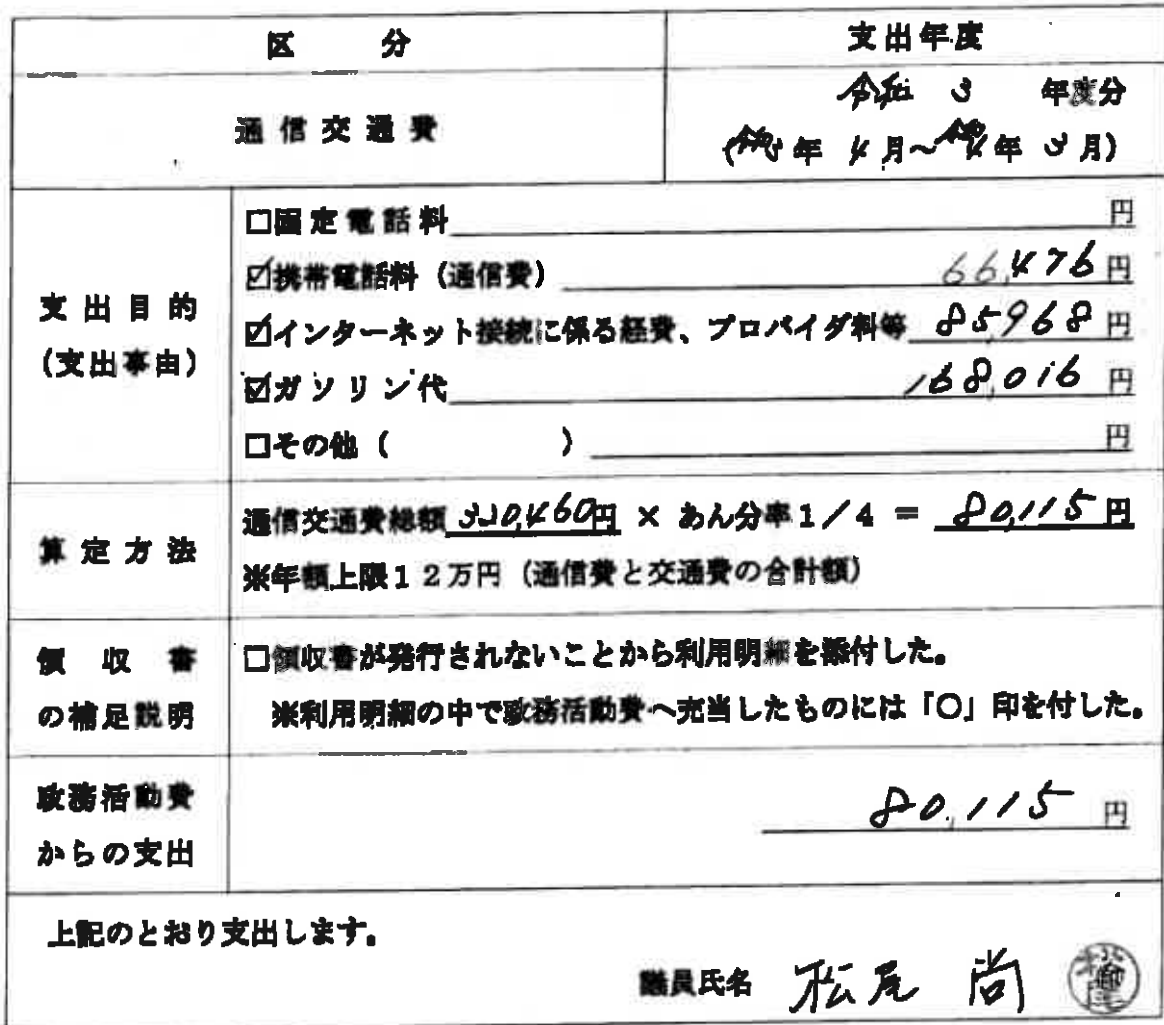 区 分
支出年度
通信交通費
令和 3 年度分
(令和3年 4月~令和4年 3月)
支出目的
(支出事由)
□固定電話料 円
☑携帯電話料(通信費) 66,476円
☑インターネット接続に係る経費、プロバイダ料等 85,968円
☑ガソリン代 168,016円
□その他( ) 円
算定方法
通信交通費総額 320,460円 × あん分率1/4 = 80,115円
※年額上限12万円(通信費と交通費の合計額)
領収書
の補足説明
□領収書が発行されないことから利用明細を添付した。
※利用明細の中で政務活動費へ充当したものには「〇」印を付した。
政務活動費
からの支出
80,115 円
上記のとおり支出します。
議員氏名 松尾 尚
松尾